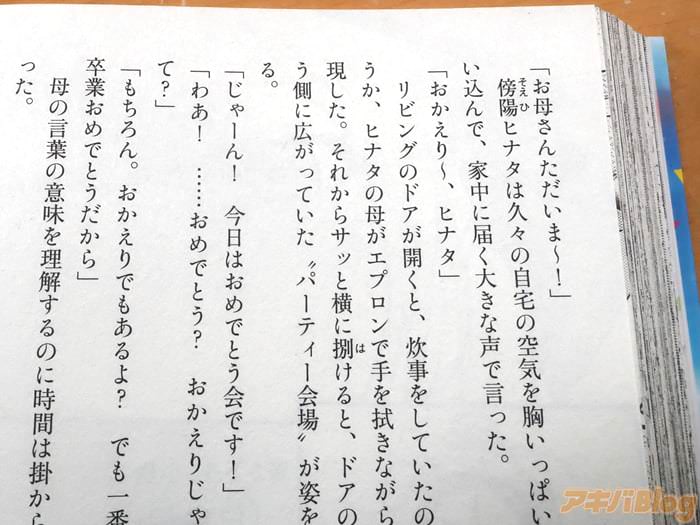 「お母さんただいま〜！」
傍陽ヒナタは久々の自宅の空気を胸いっぱい
そえひ
い込んで、家中に届く大きな声で言った。
「おかえり〜、ヒナタ」
リビングのドアが開くと、炊事をしていたの
うか、ヒナタの母がエプロンで手を拭きながら
現した。それからサッと横に捌けると、ドアの
は
う側に広がっていた〝パーティー会場〟が姿を
る。
「じゃーん！　今日はおめでとう会です！」
「わあ！　……おめでとう？　おかえりじゃ
て？」
「もちろん。おかえりでもあるよ？　でも一番
卒業おめでとうだから」
母の言葉の意味を理解するのに時間は掛から
った。
アキバBlog